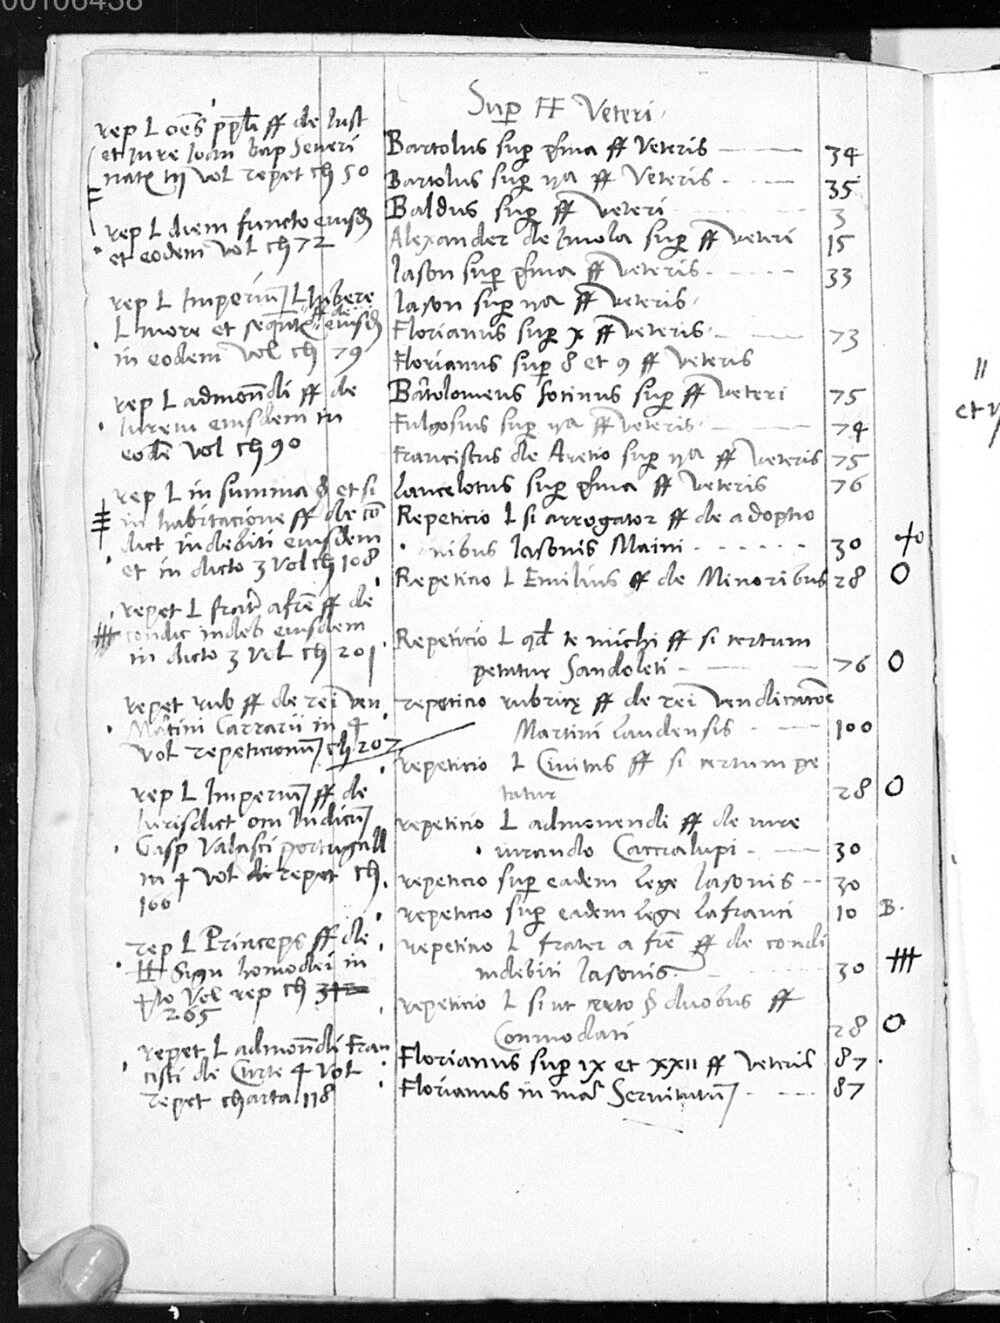 00106438
Sup ff Veteri
rep L oēs ppli ff de Iust
et iure Ioan bap Seueri
nate iij vol repet ch 50
rep L diem functo eiusd
et eodem vol ch 72
rep L Imperiū L libere
L more et sequt ff de eiusd
in eodem vol ch 79
rep L admonēdi ff de
iureiu eiusdem in
eodē vol ch 90
rep L in summa § et si
in habitacione ff de cō
dict indebiti eiusdem
et in dicto 3 vol ch 108
repet L frater a frē ff de
condic indeb eiusdem
in dicto 3 vol ch 201
repet rub ff de rei ven
Martini Carrarii in 4
vol repeticionū ch 207
rep L Imperiū ff de
Iurisdict om Iudicū
Gasp Valasci portugall
in 4 vol repet ch
166
rep L Princeps ff de
ll Sign homodei in
4to vol rep ch 342
265
repet L admonēdi Fran
cisci de Curte 4 vol
repet charta 118
Bartolus sup pma ff Veteris 34
Bartolus sup ija ff Veteris 35
Baldus sup ff veteri 3
Alexander de Imola sup ff veteri 15
Iason sup pma ff veteris 33
Iason sup ija ff veteris
Florianus sup x ff veteris 73
Florianus sup 8 et 9 ff veteris
Bartolomeus Socinus sup ff veteri 75
Fulgosius sup ija ff veteris 74
Franciscus de Aretio sup ija ff veteris 75
Lancelotus sup pma ff veteris 76
Repeticio L si arrogator ff de adoptio
nibus Iasonis Maini 30
Repeticio L Emilius ff de Minoribus 28 O
Repeticio L qd te michi ff si certum
petatur Sandoleti 76 O
repeticio rubrice ff de rei vendicatiōe
Martini Laudensis 100
repeticio L Ciuitas ff si certum pe
tatur 28 O
repeticio L admonendi ff de iure
iurando Caccialupi 30
repeticio sup eadem lege Iasonis 30
repeticio sup eadem lege Lafranci 10 B.
repeticio L frater a frē ff de condi
indebiti Iasonis 30
repeticio L si ut certo § duobus ff
Commodati 28 O
Florianus sup IX et XXII ff veteris 87
Florianus in mā Seruitutū 87
et